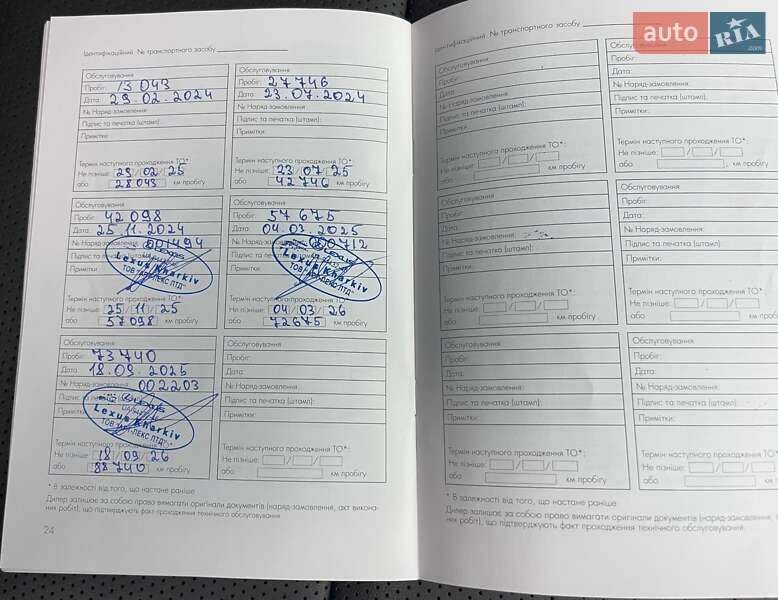 Ідентифікаційний № транспортного засобу
Обслуговування
Пробіг: 13 043
Дата: 29.02.2024
№ Наряд-замовлення:
Підпис та печатка (штамп):
Примітки:
Термін наступного проходження ТО*:
Не пізніше: 29/02/25
або 28043 км пробігу
Обслуговування
Пробіг: 27746
Дата: 23.07.2024
№ Наряд-замовлення:
Підпис та печатка (штамп):
Примітки:
Термін наступного проходження ТО*:
Не пізніше: 23/07/25
або 42746 км пробігу
Обслуговування
Пробіг: 42 098
Дата: 25.11.2024
№ Наряд-замовлення: 001494
Підпис та
Примітки
Lexus Kharkiv
Термін наступного проходження ТО*:
Не пізніше: 25/11/25
або 57098 км пробігу
Обслуговування
Пробіг: 57 675
Дата: 04.03.2025
№ Наряд-замовлення: 00712
Підпис та
Примітки
Lexus Kharkiv
Термін наступного проходження ТО*:
Не пізніше: 04/03/26
або 72675 км пробігу
Обслуговування
Пробіг: 73740
Дата: 18.09.2025
№ Наряд-замовлення: 002203
Підпис та
Примітки
Lexus Kharkiv
Термін наступного проходження ТО*:
Не пізніше: 18/09/26
або 88740 км пробігу
Обслуговування
Пробіг:
Дата:
№ Наряд-замовлення:
Підпис та печатка (штамп):
Примітки:
Термін наступного проходження ТО*:
Не пізніше:
або км пробігу
* В залежності від того, що настане раніше
Дилер залишає за собою право вимагати оригінали документів (наряд-замовлення, акт викона-
них робіт), що підтверджують факт проходження технічного обслуговування
24
Ідентифікаційний № транспортного засобу
Обслуговування
Пробіг:
Дата:
№ Наряд-замовлення:
Підпис та печатка (штамп):
Примітки:
Термін наступного проходження ТО*:
Не пізніше:
або км пробігу
Обслуговування
Пробіг:
Дата:
№ Наряд-замовлення:
Підпис та печатка (штамп):
Примітки:
Термін наступного проходження ТО*:
Не пізніше:
або км пробігу
Обслуговування
Пробіг:
Дата:
№ Наряд-замовлення:
Підпис та печатка (штамп):
Примітки:
Термін наступного проходження ТО*:
Не пізніше:
або км пробігу
Обслуговування
Пробіг:
Дата:
№ Наряд-замовлення:
Підпис та печатка (штамп):
Примітки:
Термін наступного проходження ТО*:
Не пізніше:
або км пробігу
Обслуговування
Пробіг:
Дата:
№ Наряд-замовлення:
Підпис та печатка (штамп):
Примітки:
Термін наступного проходження ТО*:
Не пізніше:
або км пробігу
Обслуговування
Пробіг:
Дата:
№ Наряд-замовлення:
Підпис та печатка (штамп):
Примітки:
Термін наступного проходження ТО*:
Не пізніше:
або км пробігу
* В залежності від того, що настане раніше
Дилер залишає за собою право вимагати оригінали документів (наряд-замовлення,
них робіт), що підтверджують факт проходження технічного обслуговування.
auto RIA.com